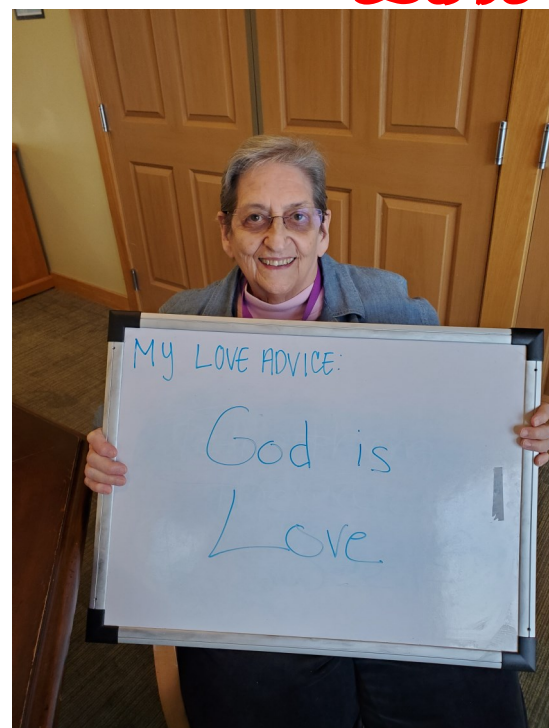 MY LOVE ADVICE:
God is
Love